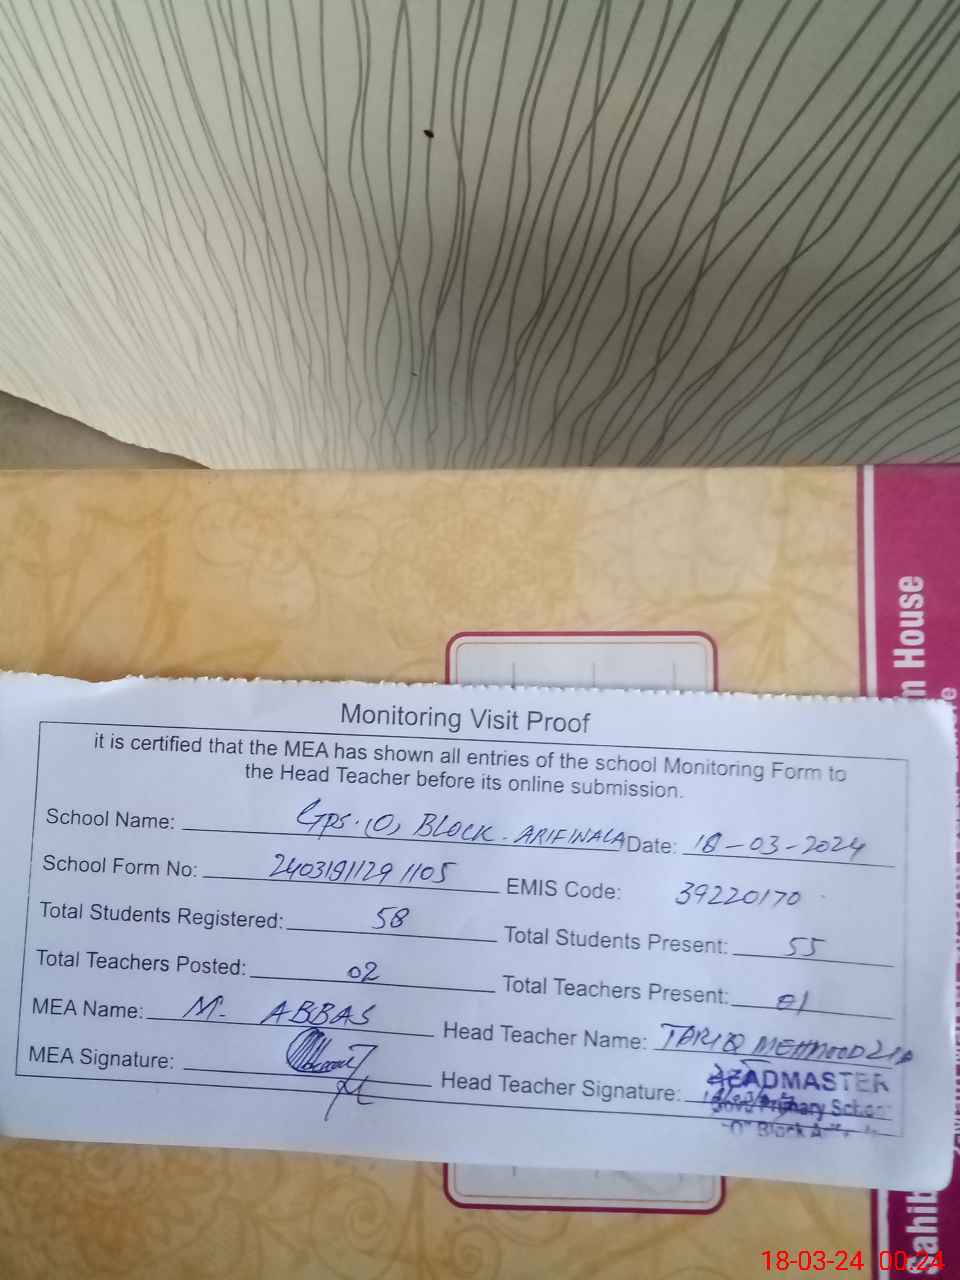 Monitoring Visit Proof
it is certified that the MEA has shown all entries of the school Monitoring Form to
the Head Teacher before its online submission.
School Name: GPS. "O" BLOCK - ARIFWALA Date: 18-03-2024
School Form No: 24031911291105 EMIS Code: 39220170
Total Students Registered: 58 Total Students Present: 55
Total Teachers Posted: 02 Total Teachers Present: 01
MEA Name: M. ABBAS Head Teacher Name: TARIQ MEHMOOD ZIA
MEA Signature: Head Teacher Signature:
HEADMASTER
Govt Primary School
"O" Block
m House
Sahib
18-03-24 00:24